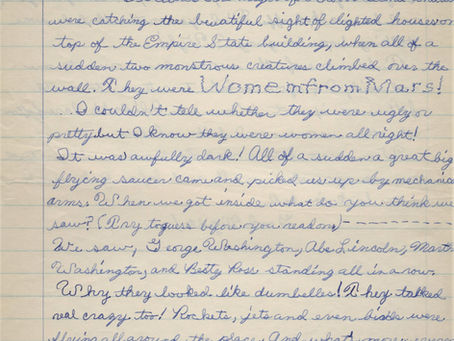 were catching the beautiful sight of lighted houses on
top of the Empire State building, when all of a
sudden two monstrous creatures climbed over the
wall. They were Women from Mars!
... I couldn't tell whether they were ugly or
pretty but I know they were women all right!
It was awfully dark! All of a sudden a great big
flying saucer came and picked us up by mechanical
arms. When we got inside what do you think we
saw? (Try to guess before you read on)
We saw, George Washington, Abe Lincoln, Martha
Washington, and Besty Ross standing all in a row.
Why they looked like dumbelles! They talked
real crazy too! Rockets, jets and even birds were
flying all around the place. And what's more